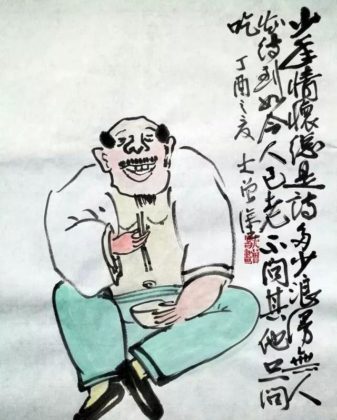 少年情懷總是詩多少浪漫無人
知待到如今人已老不问其他只问
吃
丁酉之夏